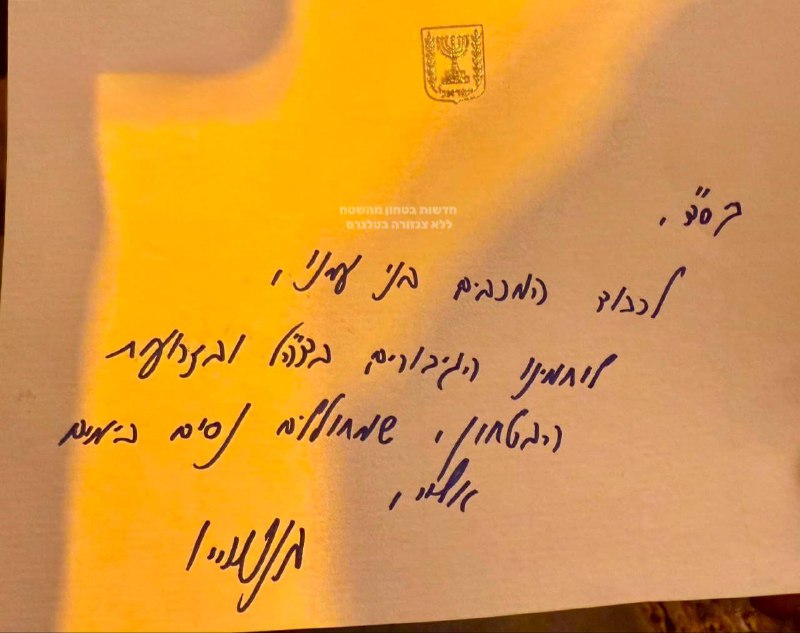 ישראל
חדשות בטחון מהשטח
ללא צנזורה בטלגרם
בס״ד,
לכבוד המכבים בני עמנו,
לוחמינו הגיבורים בצה״ל ובזרועות
הבטחון, שמחוללים נסים בימים
אלו,